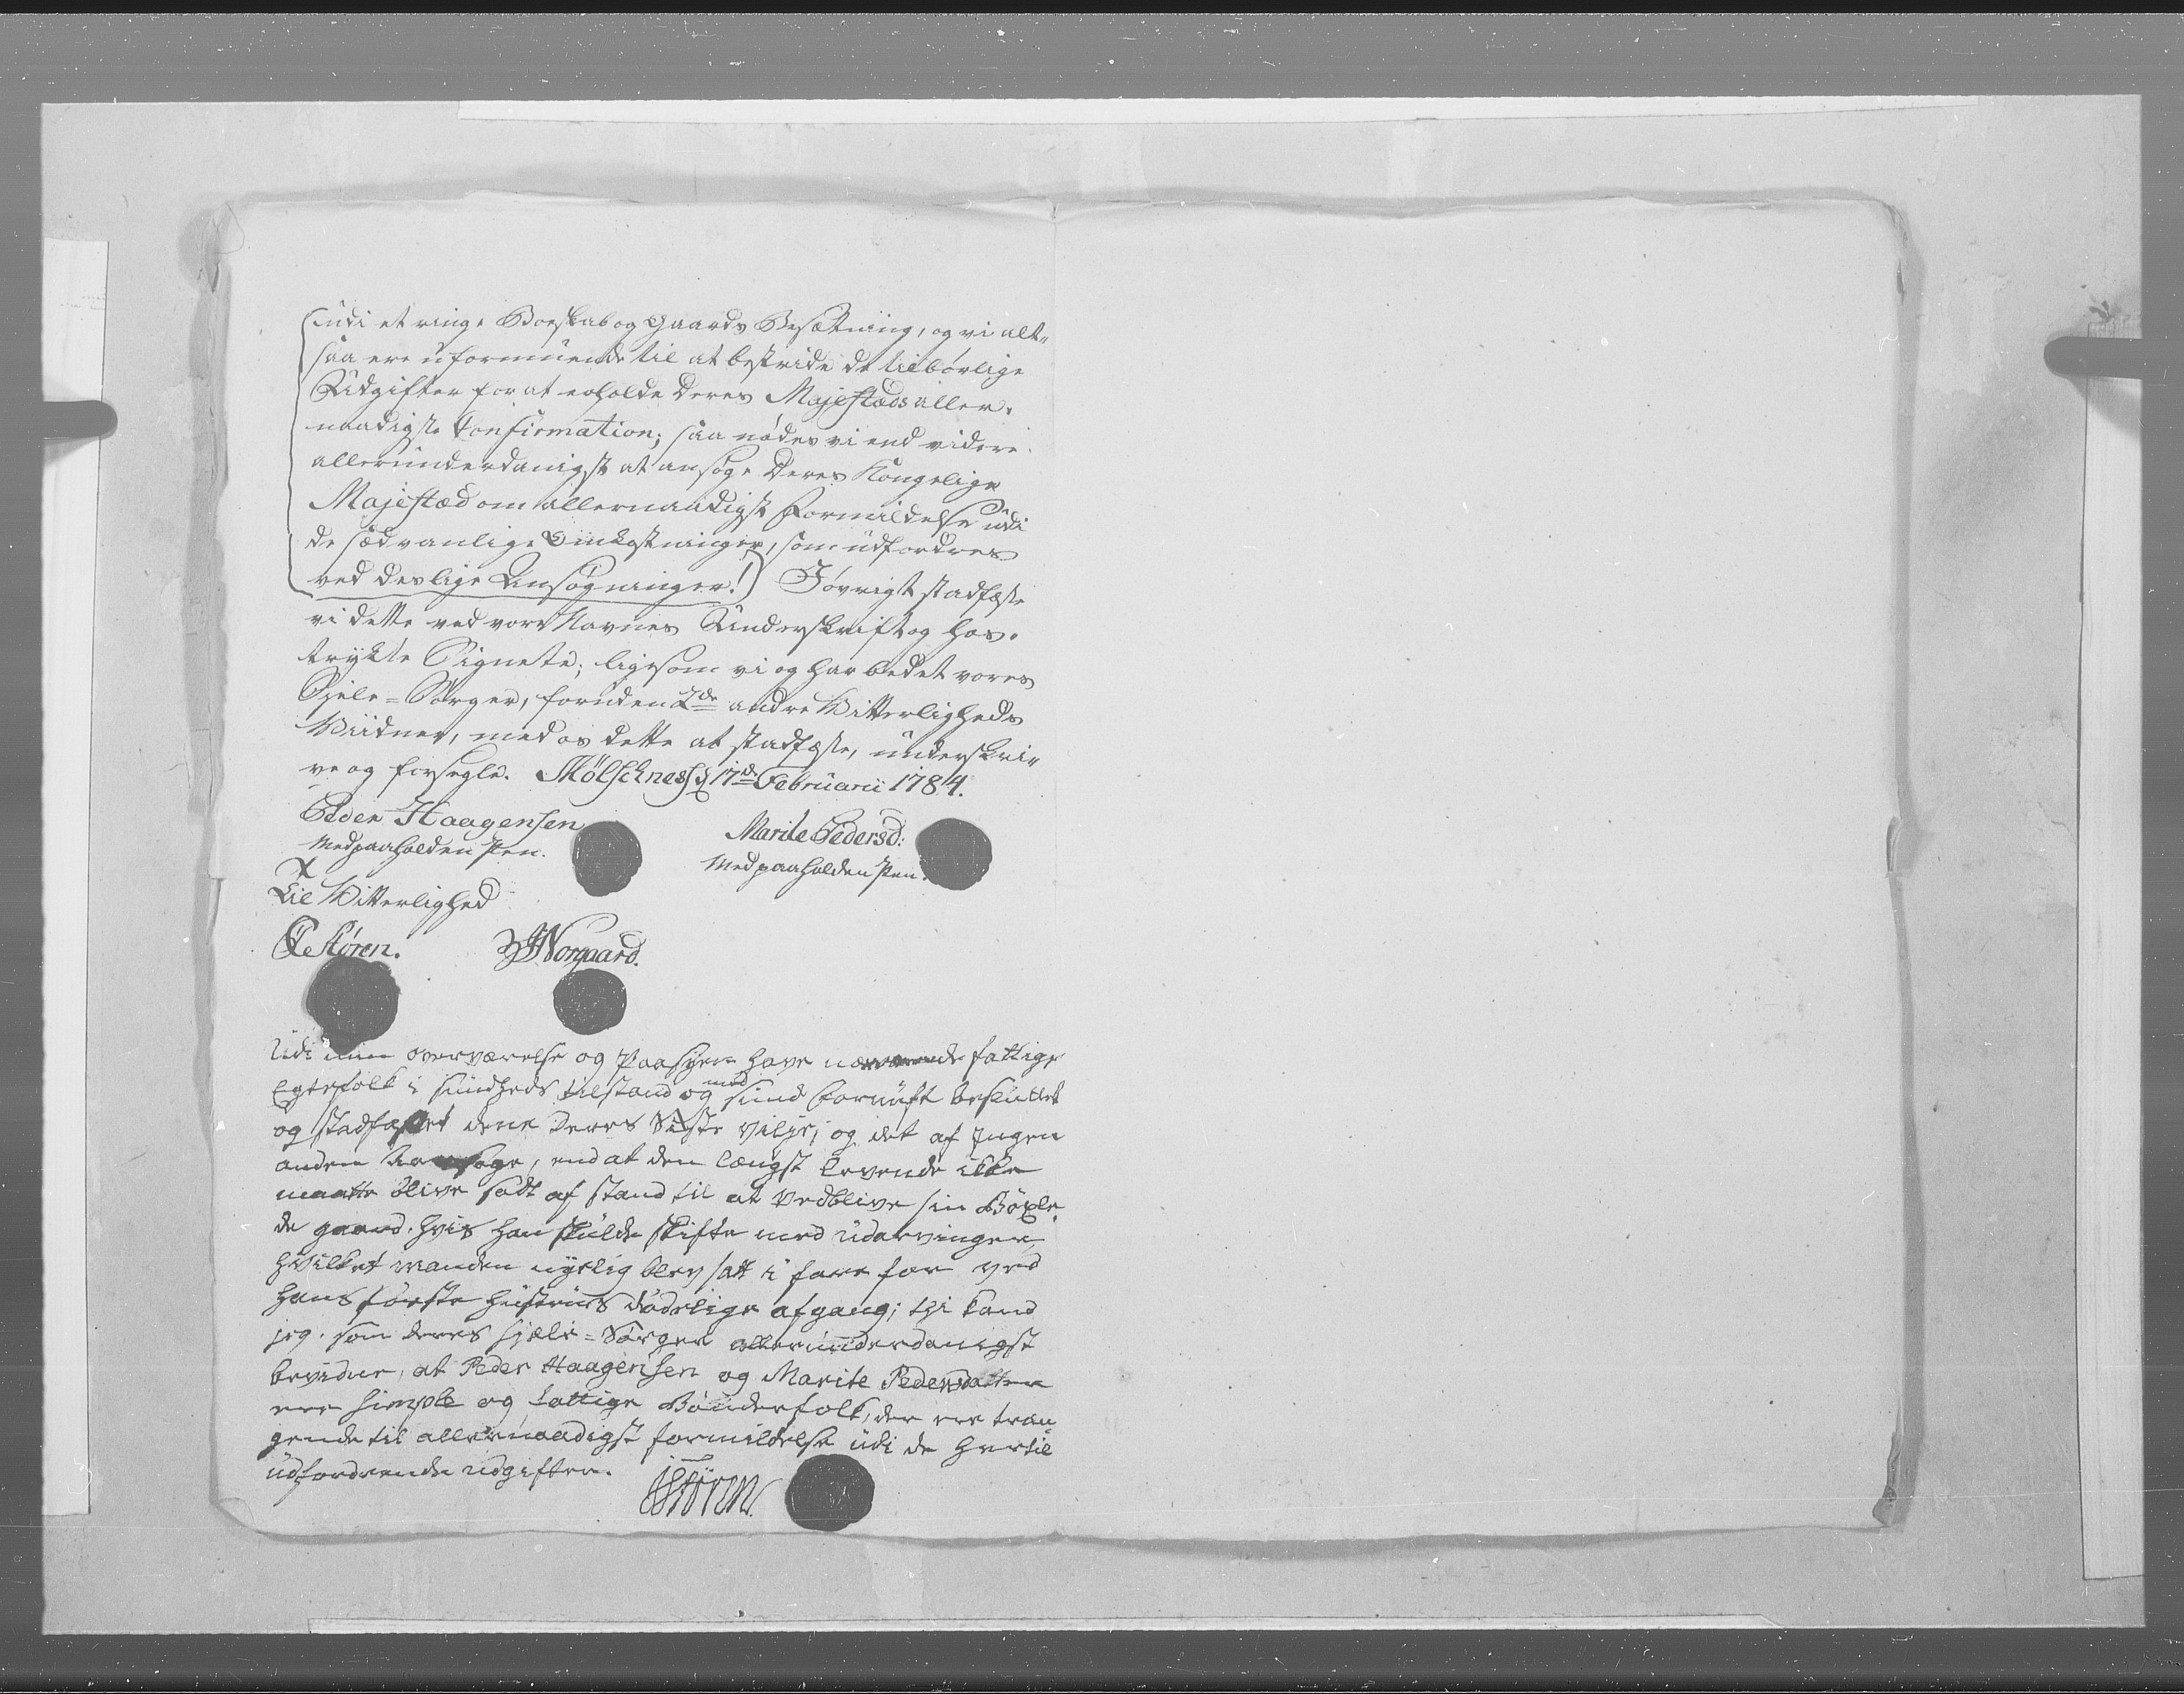 udi et ringe Boeskab og Gaards Besætning, og vi alt„
saa ere uformuende til at bestride de tilbørlige
Udgifter for at erholde Deres Majestæds aller„
naadigste Confirmation; saa nødes vi end videre
allerunderdanigst at ansøge Deres Kongelige
Majestæd om allernaadigst Formildelse udi
de sædvanlige Omkostninger, som udfordres
ved deslige Ansøgninger! Iøvrigt stadfæste
vi dette ved vore Navnes Underskrift og hos„
trykte Signete; ligesom vi og har bedet vores
Sjele-Sørger, foruden 2de andre Vitterligheds
Vidner, med os dette at stadfæste, underskri„
ve og forsegle. Mølschnes d 17de Februarii 1784.
Peder Haagensen
Med paaholden Pen.
Marite Pedersd:
Med paaholden Pen.
Til Vitterlighed
Støren.
Norgaard.
Udi min overværelse og Paasyen have nærværende fattige
Egtefolk i sundheds tilstand og med sund fornuft besluttet
og stadfæstet dene deres Siste Vilje; og det af Ingen
anden Aarsage, end at den længst levende ikke
maatte blive satt af stand til at vedblive sin Bøxle„
de gaard. hvis han skulde skifte med udarvinger,
hvilket manden nyelig blev satt i fare for ved
hans første hustrues dødelige afgang; thi kand
jeg. som deres sjæle-Sørger allerunderdanigst
bevidne, at Peder Haagensen og Marite Pedersdatter
ere simple og fattige Bønderfolk, der ere træn„
gende til allernaadigst formildelse udi de hertil
udfordrende udgifter.
Støren